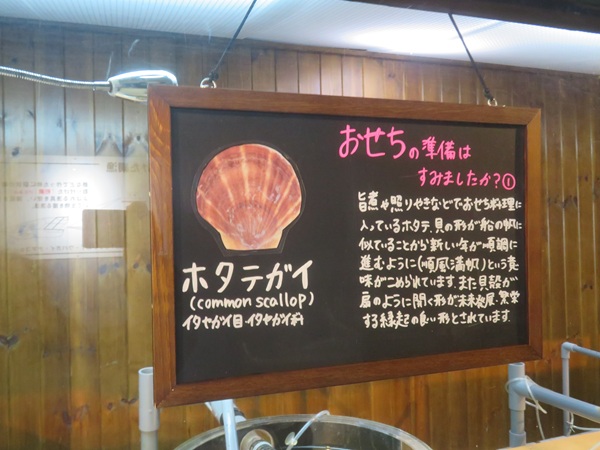 おせちの準備は
すみましたか?①
旨煮や照りやきなどでおせち料理に
入っているホタテ。貝の形が船の帆に
似ていることから新しい年が順調に
進むように(順風満帆)という意
味がこめられています。また貝殻が
扇のように開く形が未来発展、繁栄
する縁起の良い形とされています。
ホタテガイ
(common scallop)
イタヤガイ目・イタヤガイ科